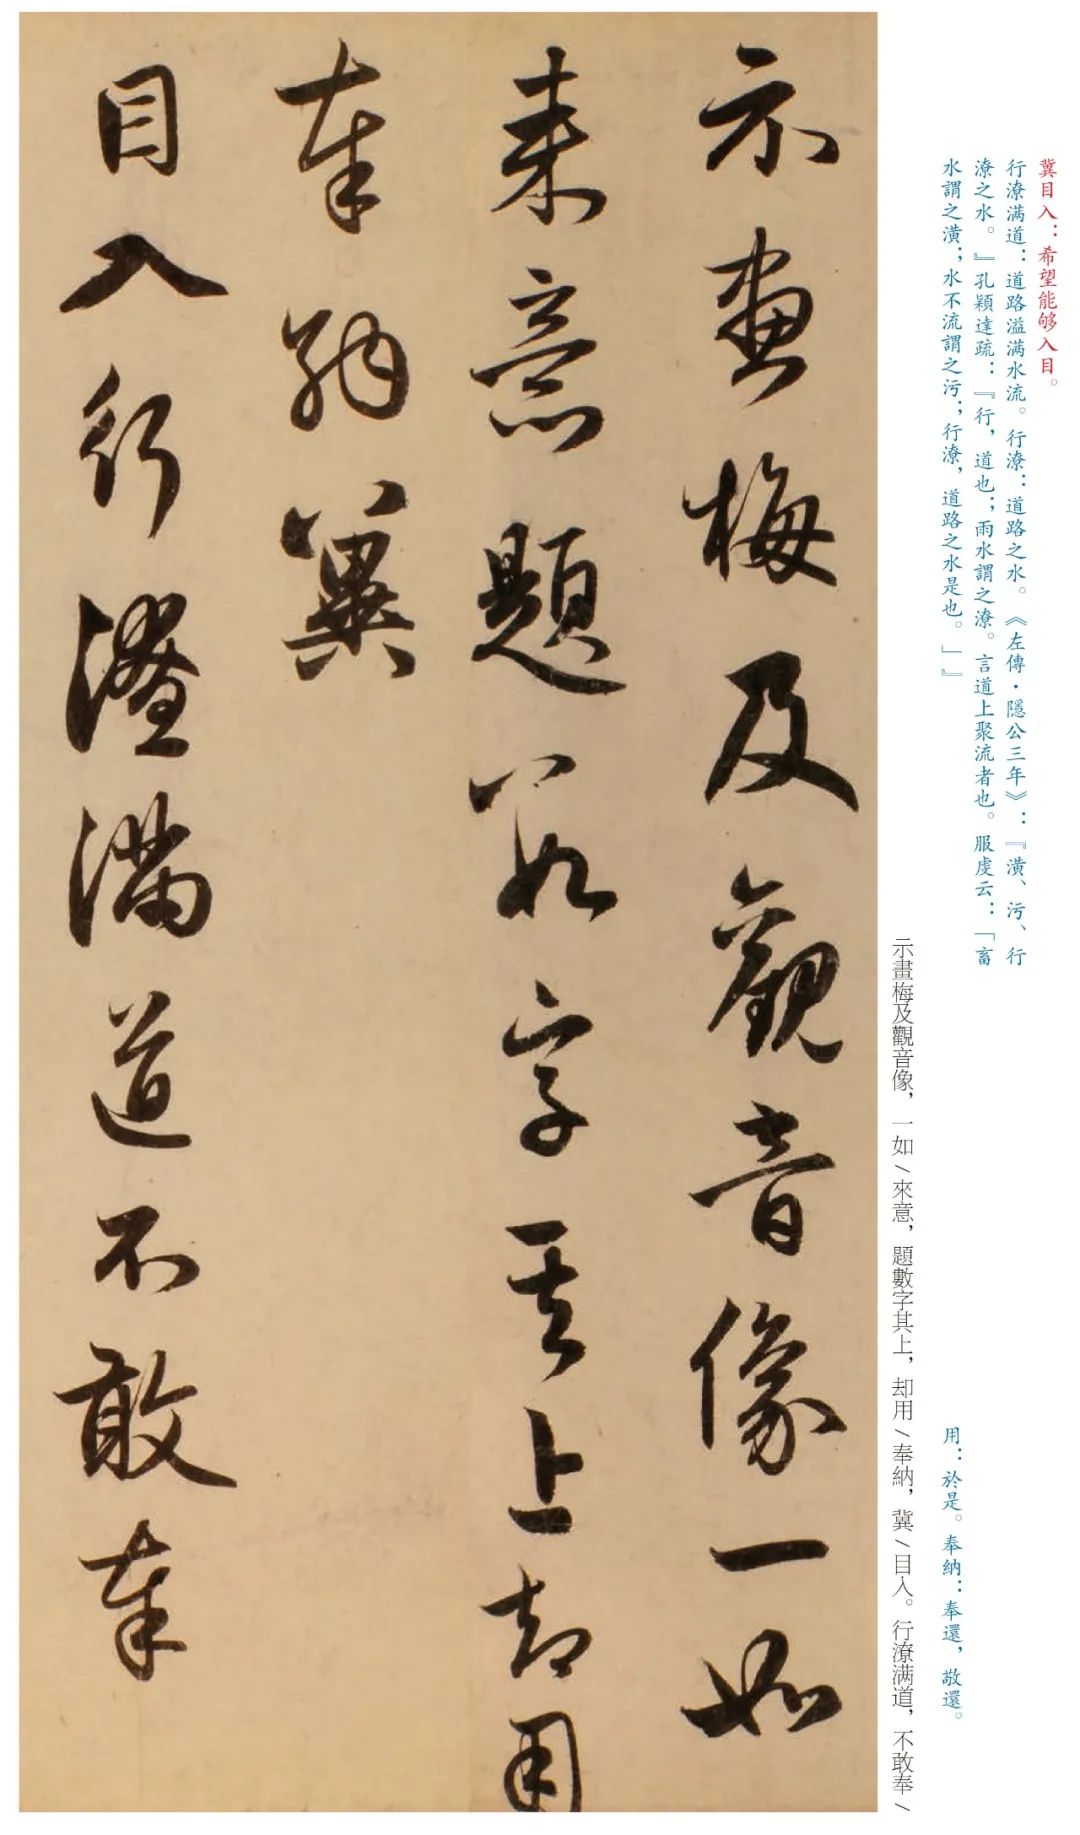 冀目入：希望能够入目。
行潦满道：道路溢满水流。行潦：道路之水。《左傳·隱公三年》：『潢、污、行
潦之水。』孔穎達疏：『行，道也；雨水謂之潦。言道上聚流者也。服虔云：「畜
水謂之潢；水不流謂之污；行潦，道路之水是也。」』
用：於是。奉納：奉還，敬還。
示畫梅及觀音像，一如\來意，題數字其上，却用\奉納，冀\目入。行潦满道，不敢奉\
示畫梅及觀音像一如
来意題數字其上却用
奉納冀
目入行潦滿道不敢奉